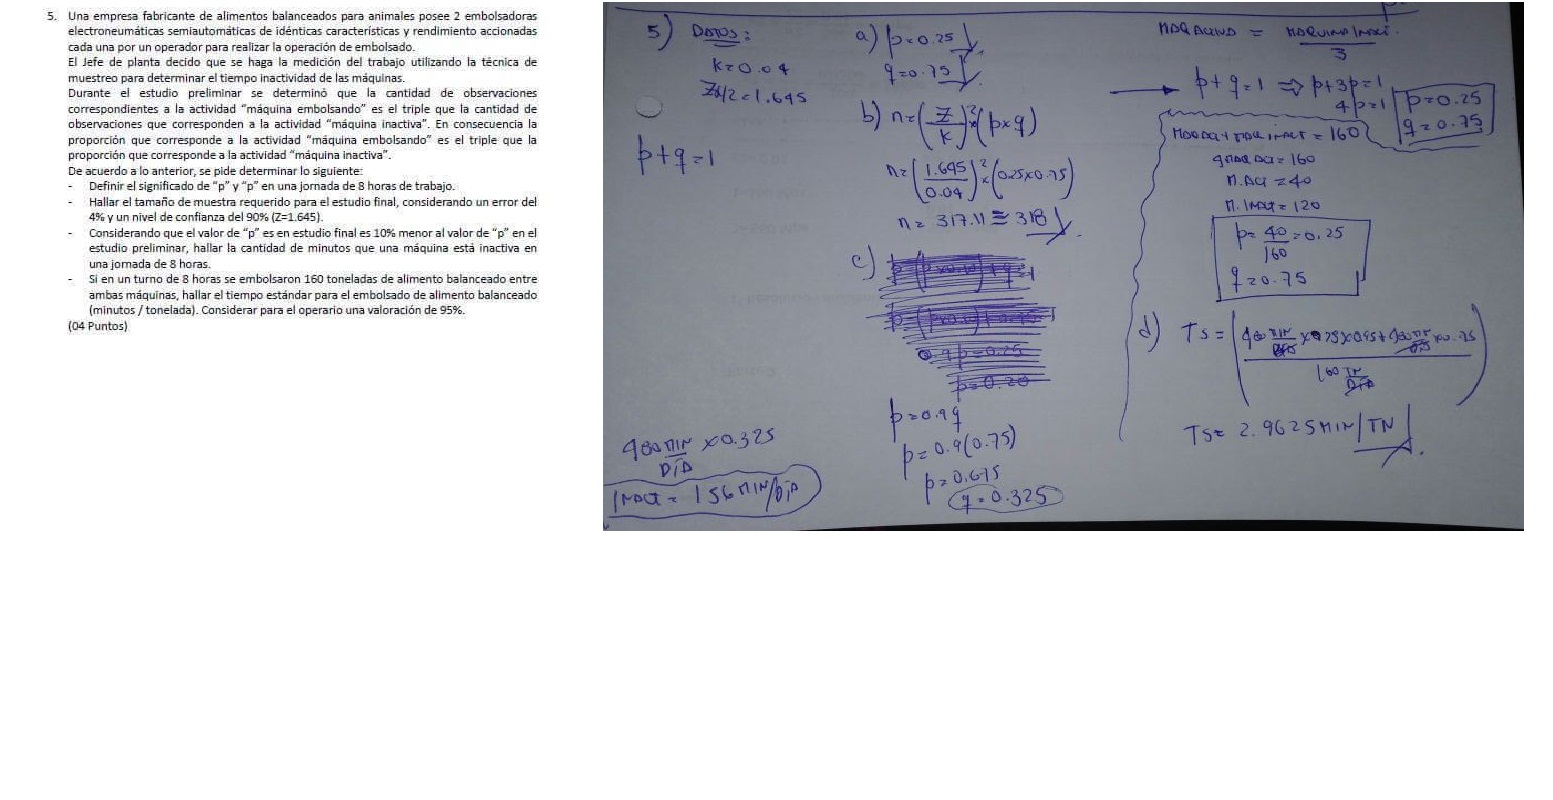 5. Una empresa fabricante de alimentos balanceados para animales posee 2 embolsadoras
electroneumáticas semiautomáticas de idénticas características y rendimiento accionadas
cada una por un operador para realizar la operación de embolsado.
El Jefe de planta decido que se haga la medición del trabajo utilizando la técnica de
muestreo para determinar el tiempo inactividad de las máquinas.
Durante el estudio preliminar se determinó que la cantidad de observaciones
correspondientes a la actividad “máquina embolsando” es el triple que la cantidad de
observaciones que corresponden a la actividad “máquina inactiva”. En consecuencia la
proporción que corresponde a la actividad “máquina embolsando” es el triple que la
proporción que corresponde a la actividad “máquina inactiva”.
De acuerdo a lo anterior, se pide determinar lo siguiente:
- Definir el significado de “p” y “p” en una jornada de 8 horas de trabajo.
- Hallar el tamaño de muestra requerido para el estudio final, considerando un error del
4% y un nivel de confianza del 90% (Z=1.645).
- Considerando que el valor de “p” es en estudio final es 10% menor al valor de “p” en el
estudio preliminar, hallar la cantidad de minutos que una máquina está inactiva en
una jornada de 8 horas.
- Si en un turno de 8 horas se embolsaron 160 toneladas de alimento balanceado entre
ambas máquinas, hallar el tiempo estándar para el embolsado de alimento balanceado
(minutos / tonelada). Considerar para el operario una valoración de 95%.
(04 Puntos)
5) DATOS:
K=0.04
Zα/2=1.645
p+q=1
480 MIN/DÍA x0.325
INACT = 156 MIN/DÍA
a) p=0.25
q=0.75
b) n=(Z/K)²x(pxq)
n=(1.645/0.04)²x(0.25x0.75)
n= 317.11 ≅ 318
c)
p=0.9q
p=0.9(0.75)
p=0.675
q=0.325
= MAQUINA INACT. / 3
p+q=1 ⇒ p+3p=1
4p=1
p=0.25
q=0.75
= 160
= 160
M.ACT =40
M.INACT=120
p= 40/160 =0.25
q=0.75
d) TS=
160 TN/DÍA
TS= 2.9625MIN/TN